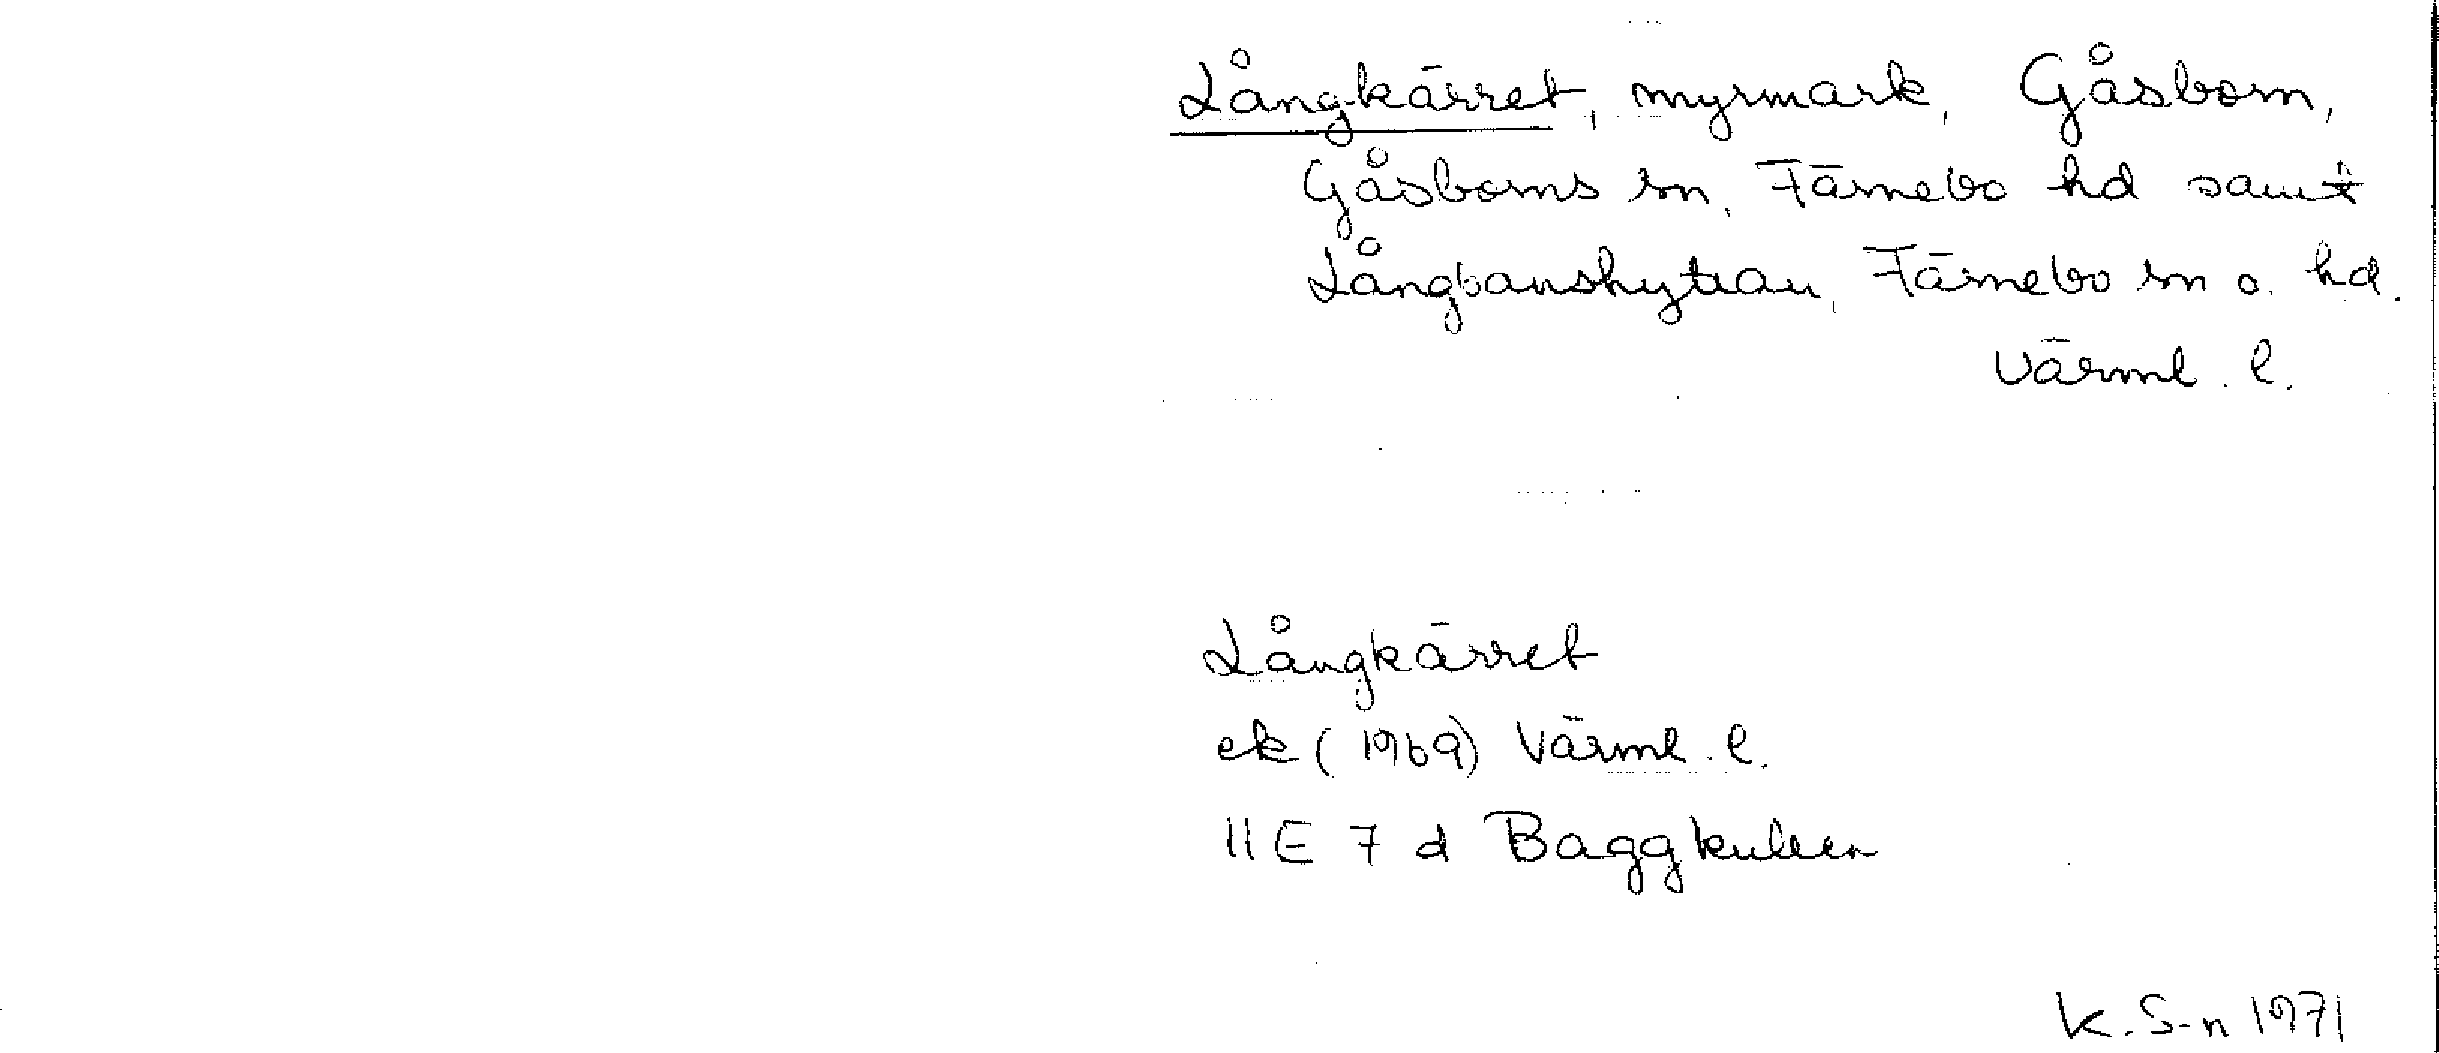 Långkärret, myrmark, Gåsborn,
Gåsborns sn, Färnebo hd samt
Långbanshyttan, Färnebo sn o. hd.
Värml. l.
Långkärret
ek (1969) Värml. l.
11E 7 d Baggkullen
K. S-n 1971